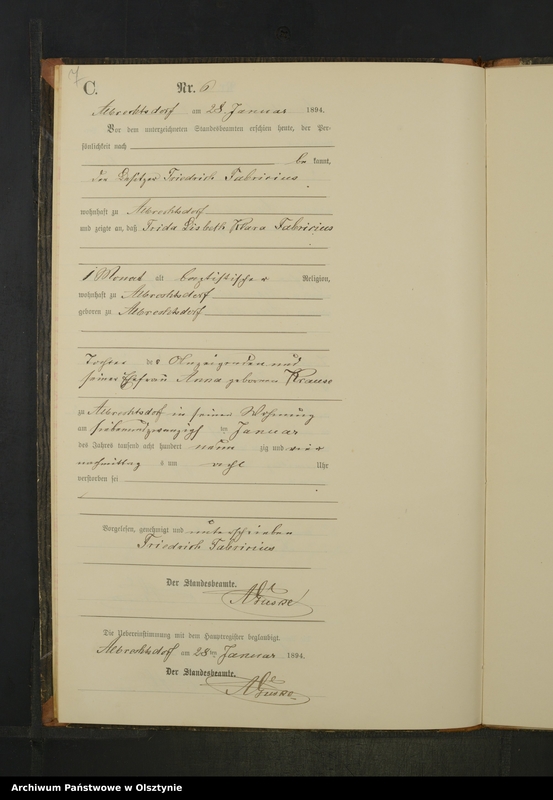 7
C.
Nr. 6
Albrechtsdorf am 28 Januar 1894.
Vor dem unterzeichneten Standesbeamten erschien heute, der Per-
sönlichkeit nach
be kannt,
der Besitzer Friedrich Fabricius
wohnhaft zu Albrechtsdorf
und zeigte an, daß Frida Lisbeth Klara Fabricius
1 Monat alt baptistischer Religion,
wohnhaft zu Albrechtsdorf
geboren zu Albrechtsdorf
Tochter des Anzeigenden und
seiner Ehefrau Anna geborenen Krause
zu Albrechtsdorf in seiner Wohnung
am siebenundzwanzigsten Januar
des Jahres tausend acht hundert neun zig und vier
nachmittags um acht Uhr
verstorben sei
Vorgelesen, genehmigt und unterschrieben
Friedrich Fabricius
Der Standesbeamte.
Die Uebereinstimmung mit dem Hauptregister beglaubigt.
Albrechtsdorf am 28ten Januar 1894.
Der Standesbeamte.
Archiwum Państwowe w Olsztynie